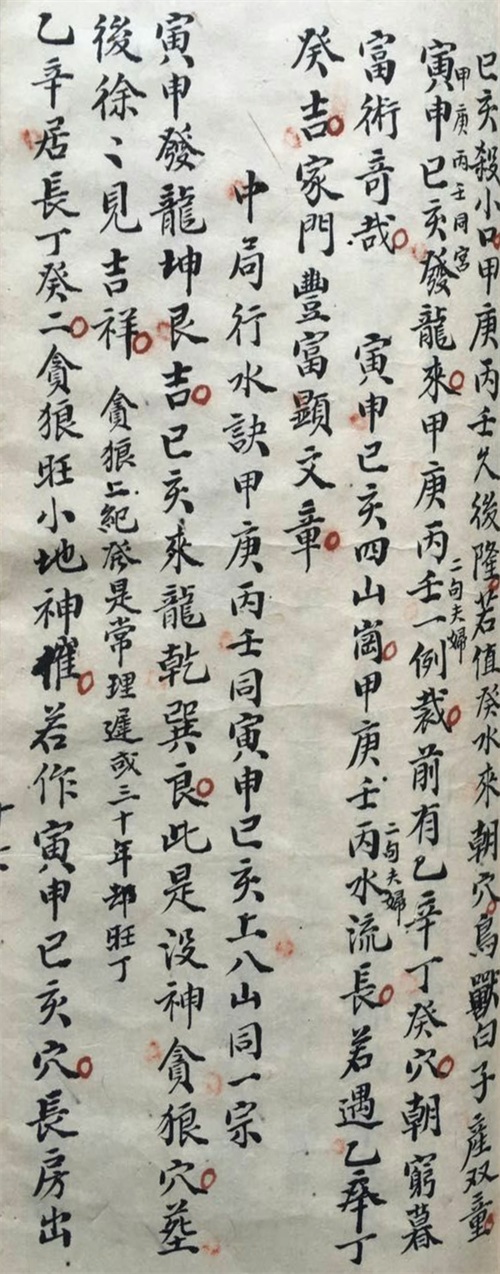 巳亥殺小口甲庚丙壬久後隆若值癸水來朝穴鳥獸白子產双童
甲庚丙壬同宮
寅申巳亥發龍來甲庚丙壬一例裁前有乙辛丁癸穴朝窮暮
二句夫婦
富術奇哉 寅申巳亥四山崗甲庚壬丙水流長若遇乙辛丁
二句夫婦
癸吉家門豐富顯文章
中局行水訣甲庚丙壬同寅申巳亥上八山同一宗
寅申發龍坤艮吉巳亥來龍乾巽良此是没神貪狼穴塟
後徐々見吉祥 貪狼上紀癸是常理遲或三十年却旺丁
乙辛居長丁癸二貪狼旺小地神催若作寅申巳亥穴長房出
十六